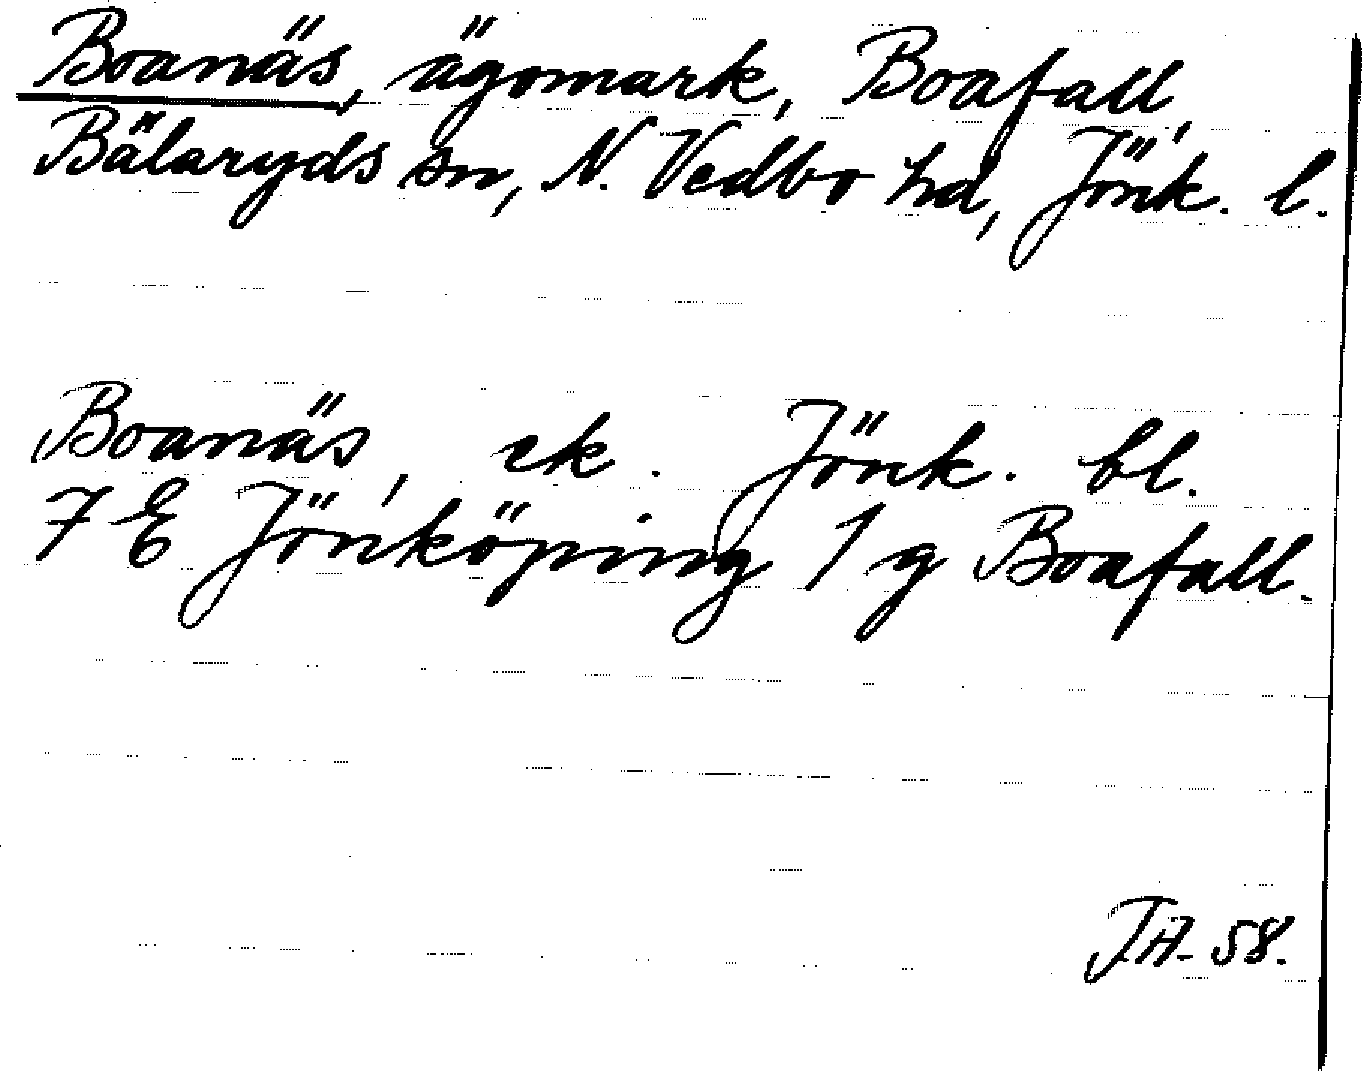 Boanäs, ägomark, Boafall,
Bälaryds sn, N. Vedbo hd, Jönk. l.
Boanäs, ek. Jönk. bl.
7 E Jönköping 1 g Boafall.
JA 58.